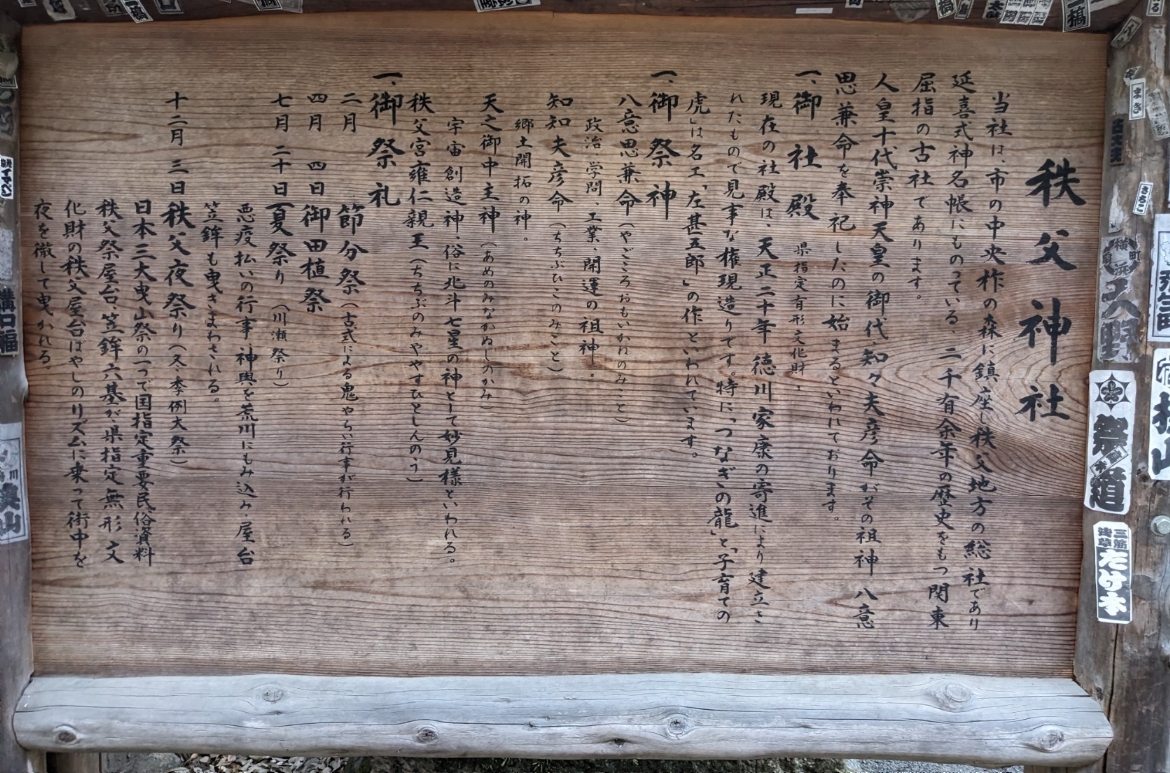 秩父神社
当社は、市の中央柞の森に鎮座し秩父地方の総社であり
延喜式神名帳にものっている、二千有余年の歴史をもつ関東
屈指の古社であります。
人皇十代崇神天皇の御代、知々夫彦命がその祖神八意
思兼命を奉祀したのに始まるといわれております。
一、御社殿 県指定有形文化財
現在の社殿は、天正二十年徳川家康の寄進により建立さ
れたもので見事な権現造りです。特に「つなぎの龍」と「子育ての
虎」は名工「左甚五郎」の作といわれています。
一、御祭神
八意思兼命（やごころおもいかねのみこと）
政治、学問、工業、開運の祖神。
知知夫彦命（ちちぶひこのみこと）
郷土開拓の神。
天之御中主神（あめのみなかぬしのかみ）
宇宙創造神、俗に北斗七星の神として妙見様といわれる。
秩父宮雍仁親王（ちちぶのみややすひとしんのう）
一、御祭礼
二月 節分祭（古式による鬼やらい行事が行われる）
四月 四日 御田植祭
七月 二十日 夏祭り（川瀬祭り）
悪疫払いの行事、神輿を荒川にもみ込み・屋台
笠鉾も曳きまわされる。
十二月 三日 秩父夜祭り（冬季例大祭）
日本三大曳山祭の一つで国指定重要民俗資料
秩父祭屋台、笠鉾六基が県指定無形文
化財の秩父屋台ばやしのリズムに乗って街中を
夜を徹して曳かれる。
祭道
三筋
浅草
たけ本
きらこ
まき